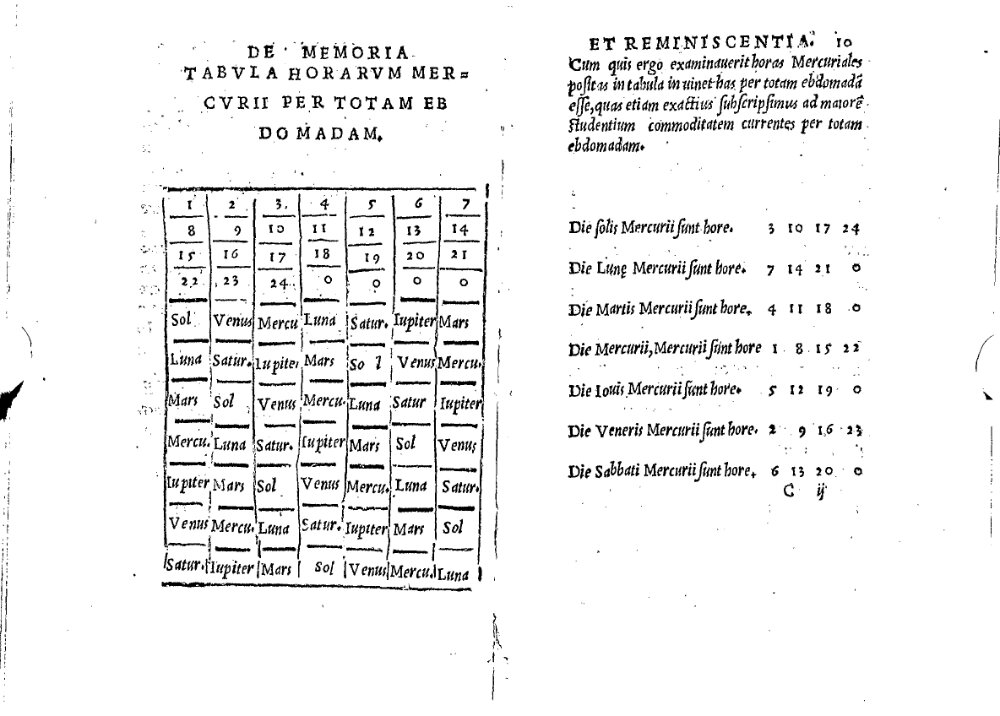 DE MEMORIA
TABVLA HORARVM MER=
CVRII PER TOTAM EB
DOMADAM.
1 2 3. 4 5 6 7
8 9 10 11 12 13 14
15 16 17 18 19 20 21
22 23 24 0 0 0 0
Sol Venus Mercu Luna Satur. Iupiter Mars
Luna Satur. Iupiter Mars So l Venus Mercu.
Mars Sol Venus Mercu. Luna Satur Iupiter
Mercu. Luna Satur. Iupiter Mars Sol Venus
Iupiter Mars Sol Venus Mercu. Luna Satur.
Venus Mercu. Luna Satur. Iupiter Mars Sol
Satur. Iupiter Mars Sol Venus Mercu. Luna
ET REMINISCENTIA. 10
Cum quis ergo examinauerit horas Mercuriales
positas in tabula in uinet has per totam ebdomadã
esse, quas etiam exactius subscripsimus ad maiorẽ
studentium commoditatem currentes per totam
ebdomadam.
Die solis Mercurii sunt hore. 3 10 17 24
Die Lunę Mercurii sunt hore. 7 14 21 0
Die Martis Mercurii sunt hore. 4 11 18 0
Die Mercurii, Mercurii sunt hore 1 8 15 22
Die Iouis Mercurii sunt hore. 5 12 19 0
Die Veneris Mercurii sunt hore. 2 9 16 23
Die Sabbati Mercurii sunt hore. 6 13 20 0
C ij